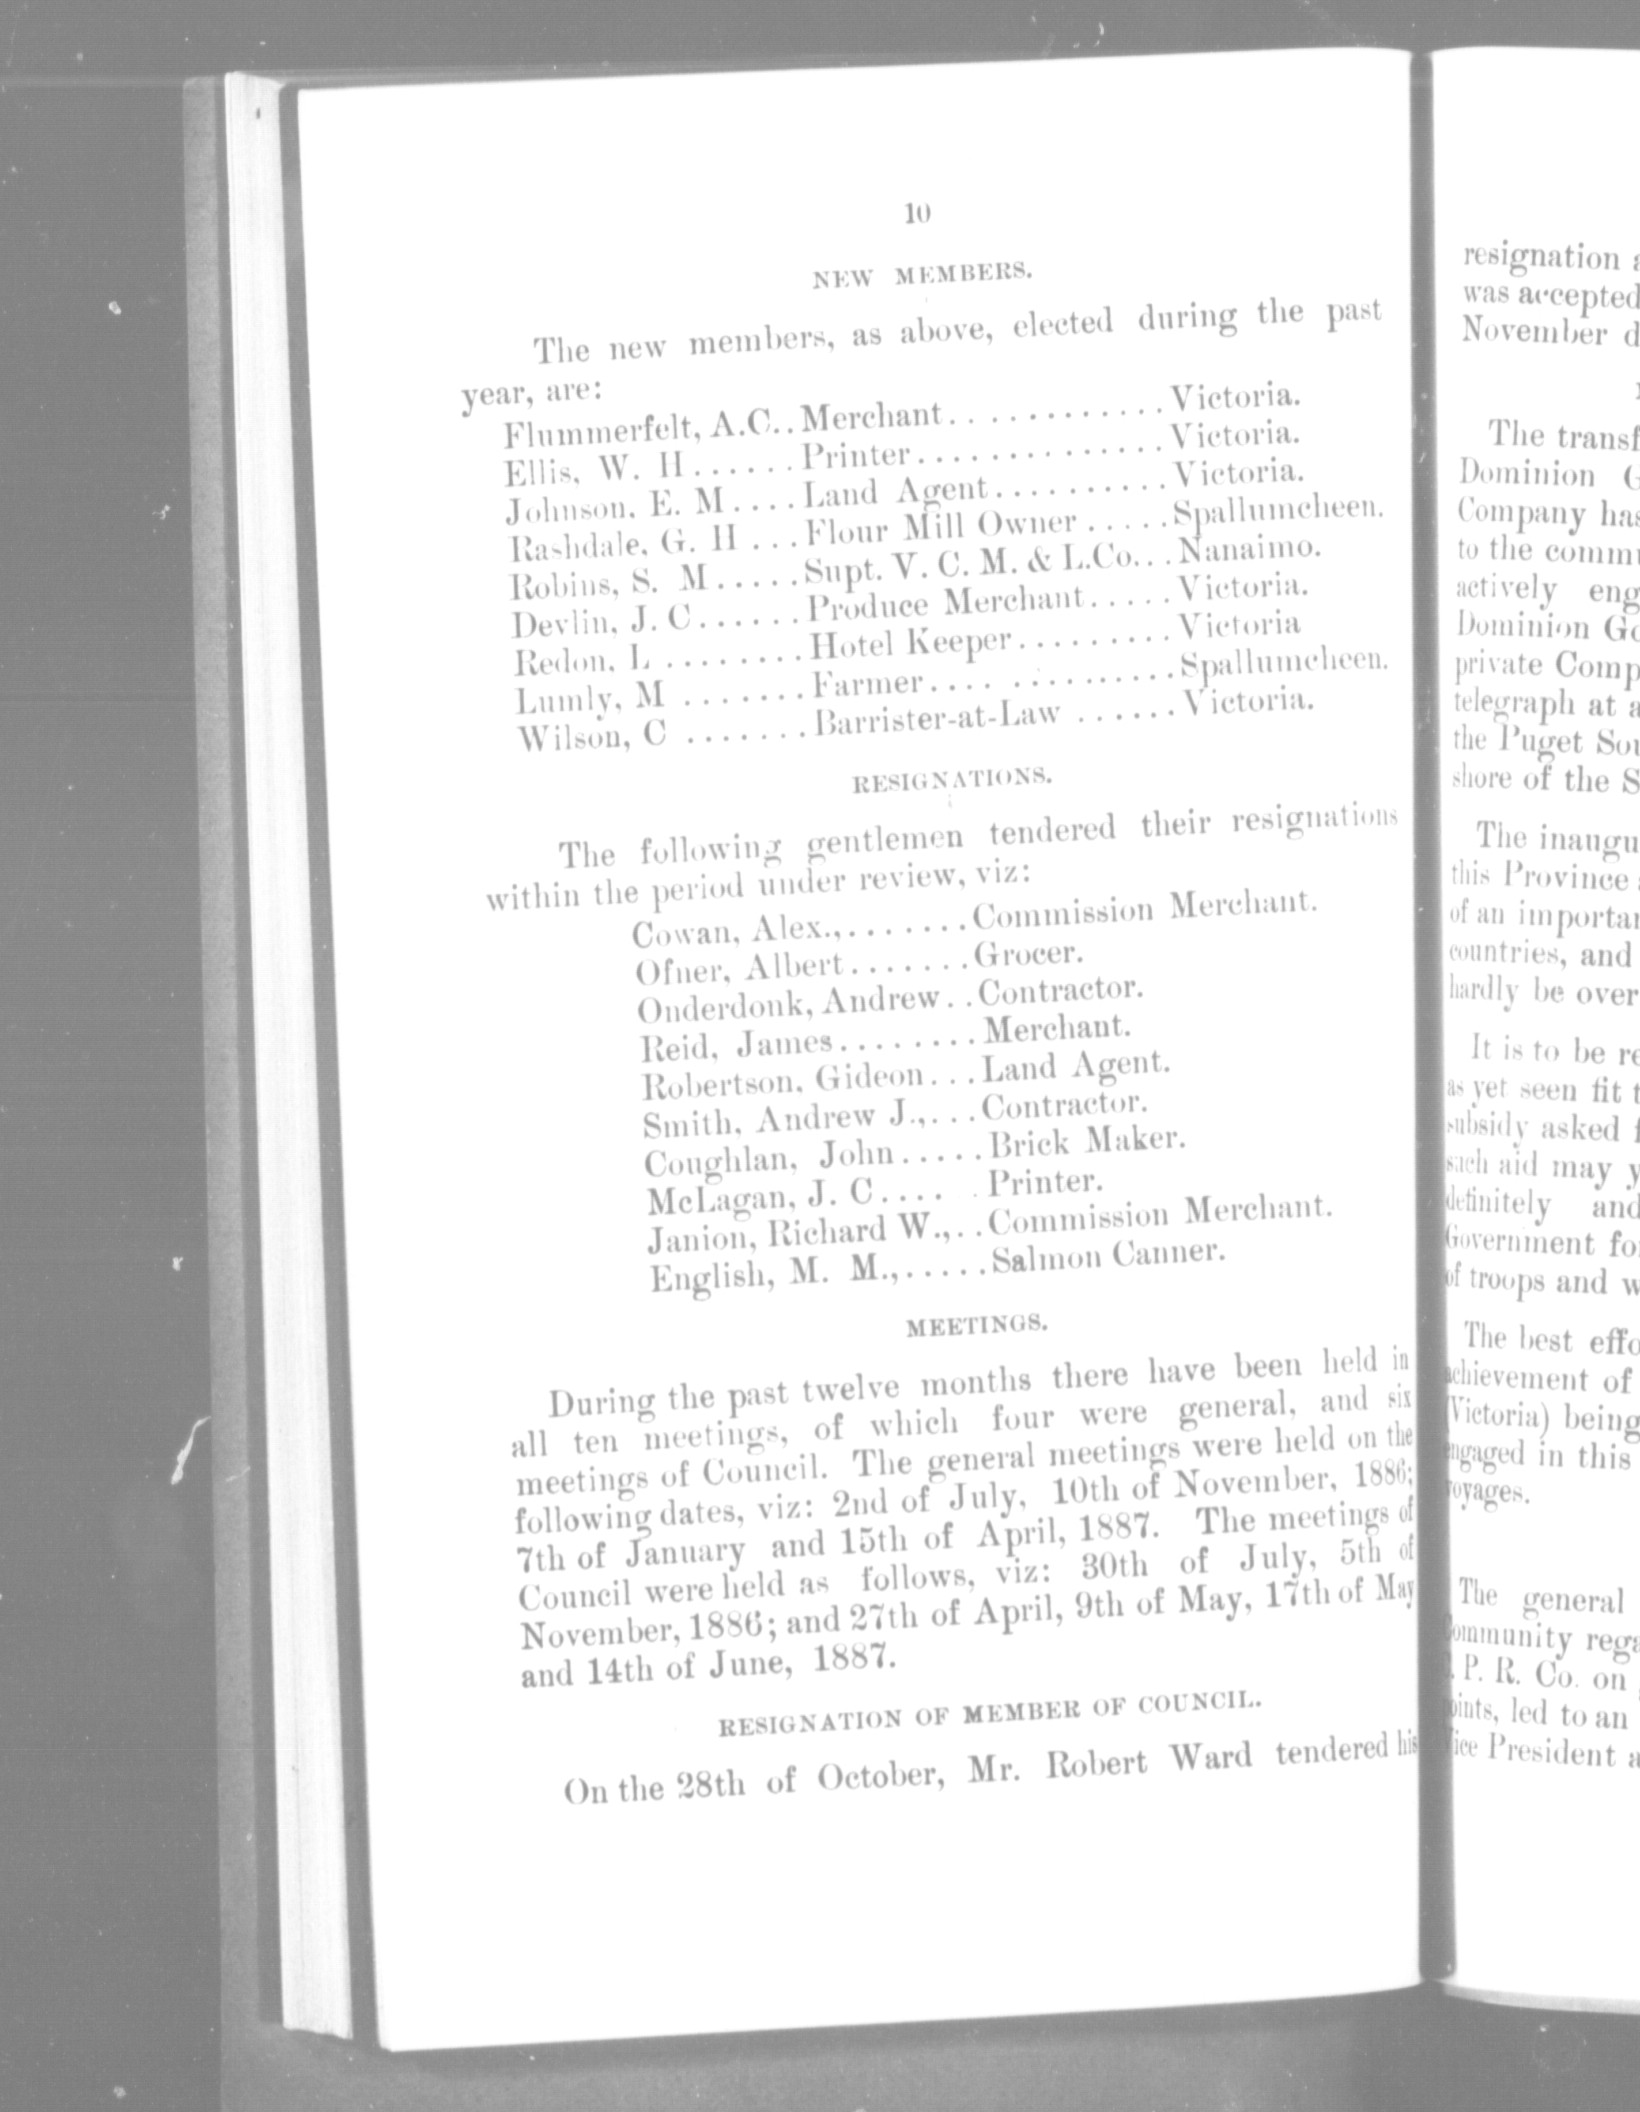 10
NEW MEMBERS.
The new members, as above, elected during the past
year, are:
Flummerfelt, A.C.. Merchant............Victoria.
Ellis, W. H......Printer..............Victoria.
Johnson, E. M....Land Agent..........Victoria.
Rashdale, G. H ...Flour Mill Owner .....Spallumcheen.
Robins, S. M.....Supt. V. C. M. & L.Co...Nanaimo.
Devlin, J. C......Produce Merchant.....Victoria.
Redon, L ........Hotel Keeper.........Victoria
Lumly, M .......Farmer.... ..........Spallumcheen.
Wilson, C .......Barrister-at-Law ......Victoria.
RESIGNATIONS.
The following gentlemen tendered their resignations
within the period under review, viz:
Cowan, Alex.,.......Commission Merchant.
Ofner, Albert.......Grocer.
Onderdonk, Andrew..Contractor.
Reid, James........Merchant.
Robertson, Gideon...Land Agent.
Smith, Andrew J.,...Contractor.
Coughlan, John.....Brick Maker.
McLagan, J. C.... .Printer.
Janion, Richard W.,..Commission Merchant.
English, M. M.,.....Salmon Canner.
MEETINGS.
During the past twelve months there have been held in
all ten meetings, of which four were general, and six
meetings of Council. The general meetings were held on the
following dates, viz: 2nd of July, 10th of November, 1886;
7th of January and 15th of April, 1887. The meetings of
Council were held as follows, viz: 30th of July, 5th of
November, 1886; and 27th of April, 9th of May, 17th of May
and 14th of June, 1887.
RESIGNATION OF MEMBER OF COUNCIL.
On the 28th of October, Mr. Robert Ward tendered his
resignation a
was accepted
November d
The transf
Dominion G
Company has
to the comm
actively eng
Dominion Go
private Comp
telegraph at a
the Puget Sou
shore of the S
The inaugu
this Province
of an importan
countries, and
hardly be over
It is to be re
as yet seen fit t
subsidy asked f
such aid may y
definitely and
Government for
of troops and w
The best effo
achievement of
(Victoria) being
engaged in this
voyages.
The general
Community rega
P. R. Co. on
oints, led to an
Vice President a